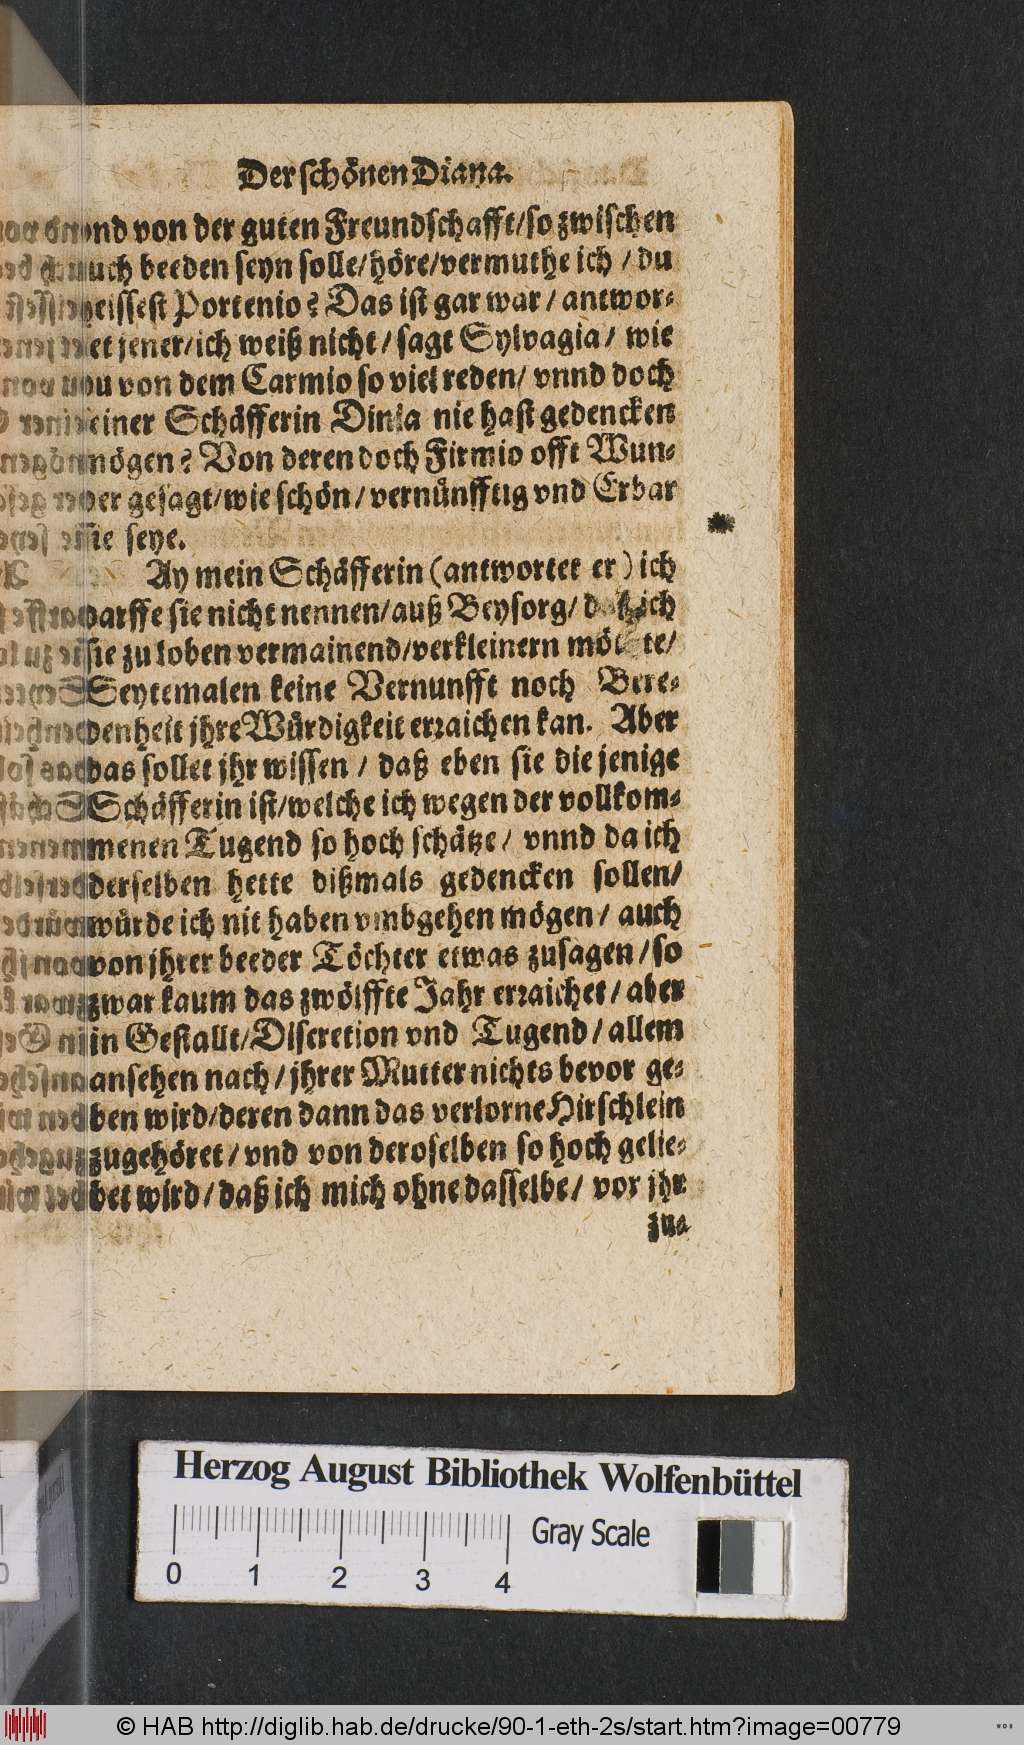 Der schönen Diana.
vnd von der guten Freundschafft/so zwischen
euch beeden seyn solle/höre/vermuthe ich / du
heissest Portenio? Das ist gar war / antwor-
tet jener/ich weiß nicht / sagt Sylvagia / wie
du von dem Carmio so viel reden/ vnnd doch
einer Schäfferin Dinia nie hast gedencken
mögen? Von deren doch Firmio offt Wun-
der gesagt/wie schön / vernünfftig vnd Erbar
sie seye.
Ay mein Schäfferin (antwortet er) ich
darffe sie nicht nennen/auß Beysorg/ daß ich
sie zu loben vermainend/verkleinern möchte/
Seytemalen keine Vernunfft noch Bere-
denheit jhre Würdigkeit erraichen kan. Aber
das sollet jhr wissen / daß eben sie die jenige
Schäfferin ist/welche ich wegen der vollkom-
menen Tugend so hoch schätze / vnnd da ich
derselben hette dißmals gedencken sollen/
würde ich nit haben vmbgehen mögen / auch
von jhrer beeder Töchter etwas zusagen / so
zwar kaum das zwölffte Jahr erraichet / aber
in Gestallt/Discretion vnd Tugend / allem
ansehen nach / jhrer Mutter nichts bevor ge-
ben wird/deren dann das verlorne Hirschlein
zugehöret / vnd von deroselben so hoch gelie-
bet wird / daß ich mich ohne dasselbe / vor jhr
zua
Herzog August Bibliothek Wolfenbüttel
Gray Scale
0 1 2 3 4
© HAB http://diglib.hab.de/drucke/90-1-eth-2s/start.htm?image=00779